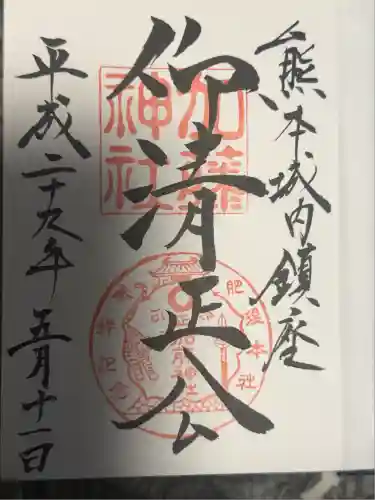 熊本城内鎮座
仰清正公
加藤
神社
平成二十九年五月十一日